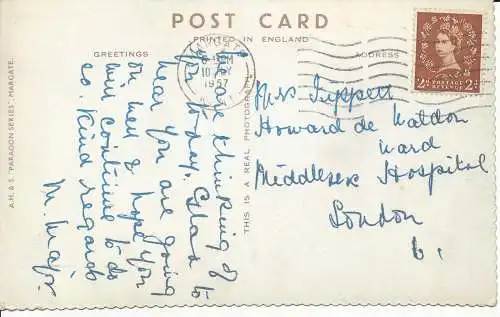 POST CARD
PRINTED IN ENGLAND
GREETINGS
ADDRESS
1957
2D POSTAGE REVENUE 2D
A.H. & S. "PARAGON SERIES" MARGATE.
THIS IS A REAL PHOTOGRAPH
thinking of
you today. Glad to
hear you are going
on well & hope you
will continue to do
so. Kind regards
M. Major
Mrs Tippett
Howard de Waldon
Ward
Middlesex Hospital
London